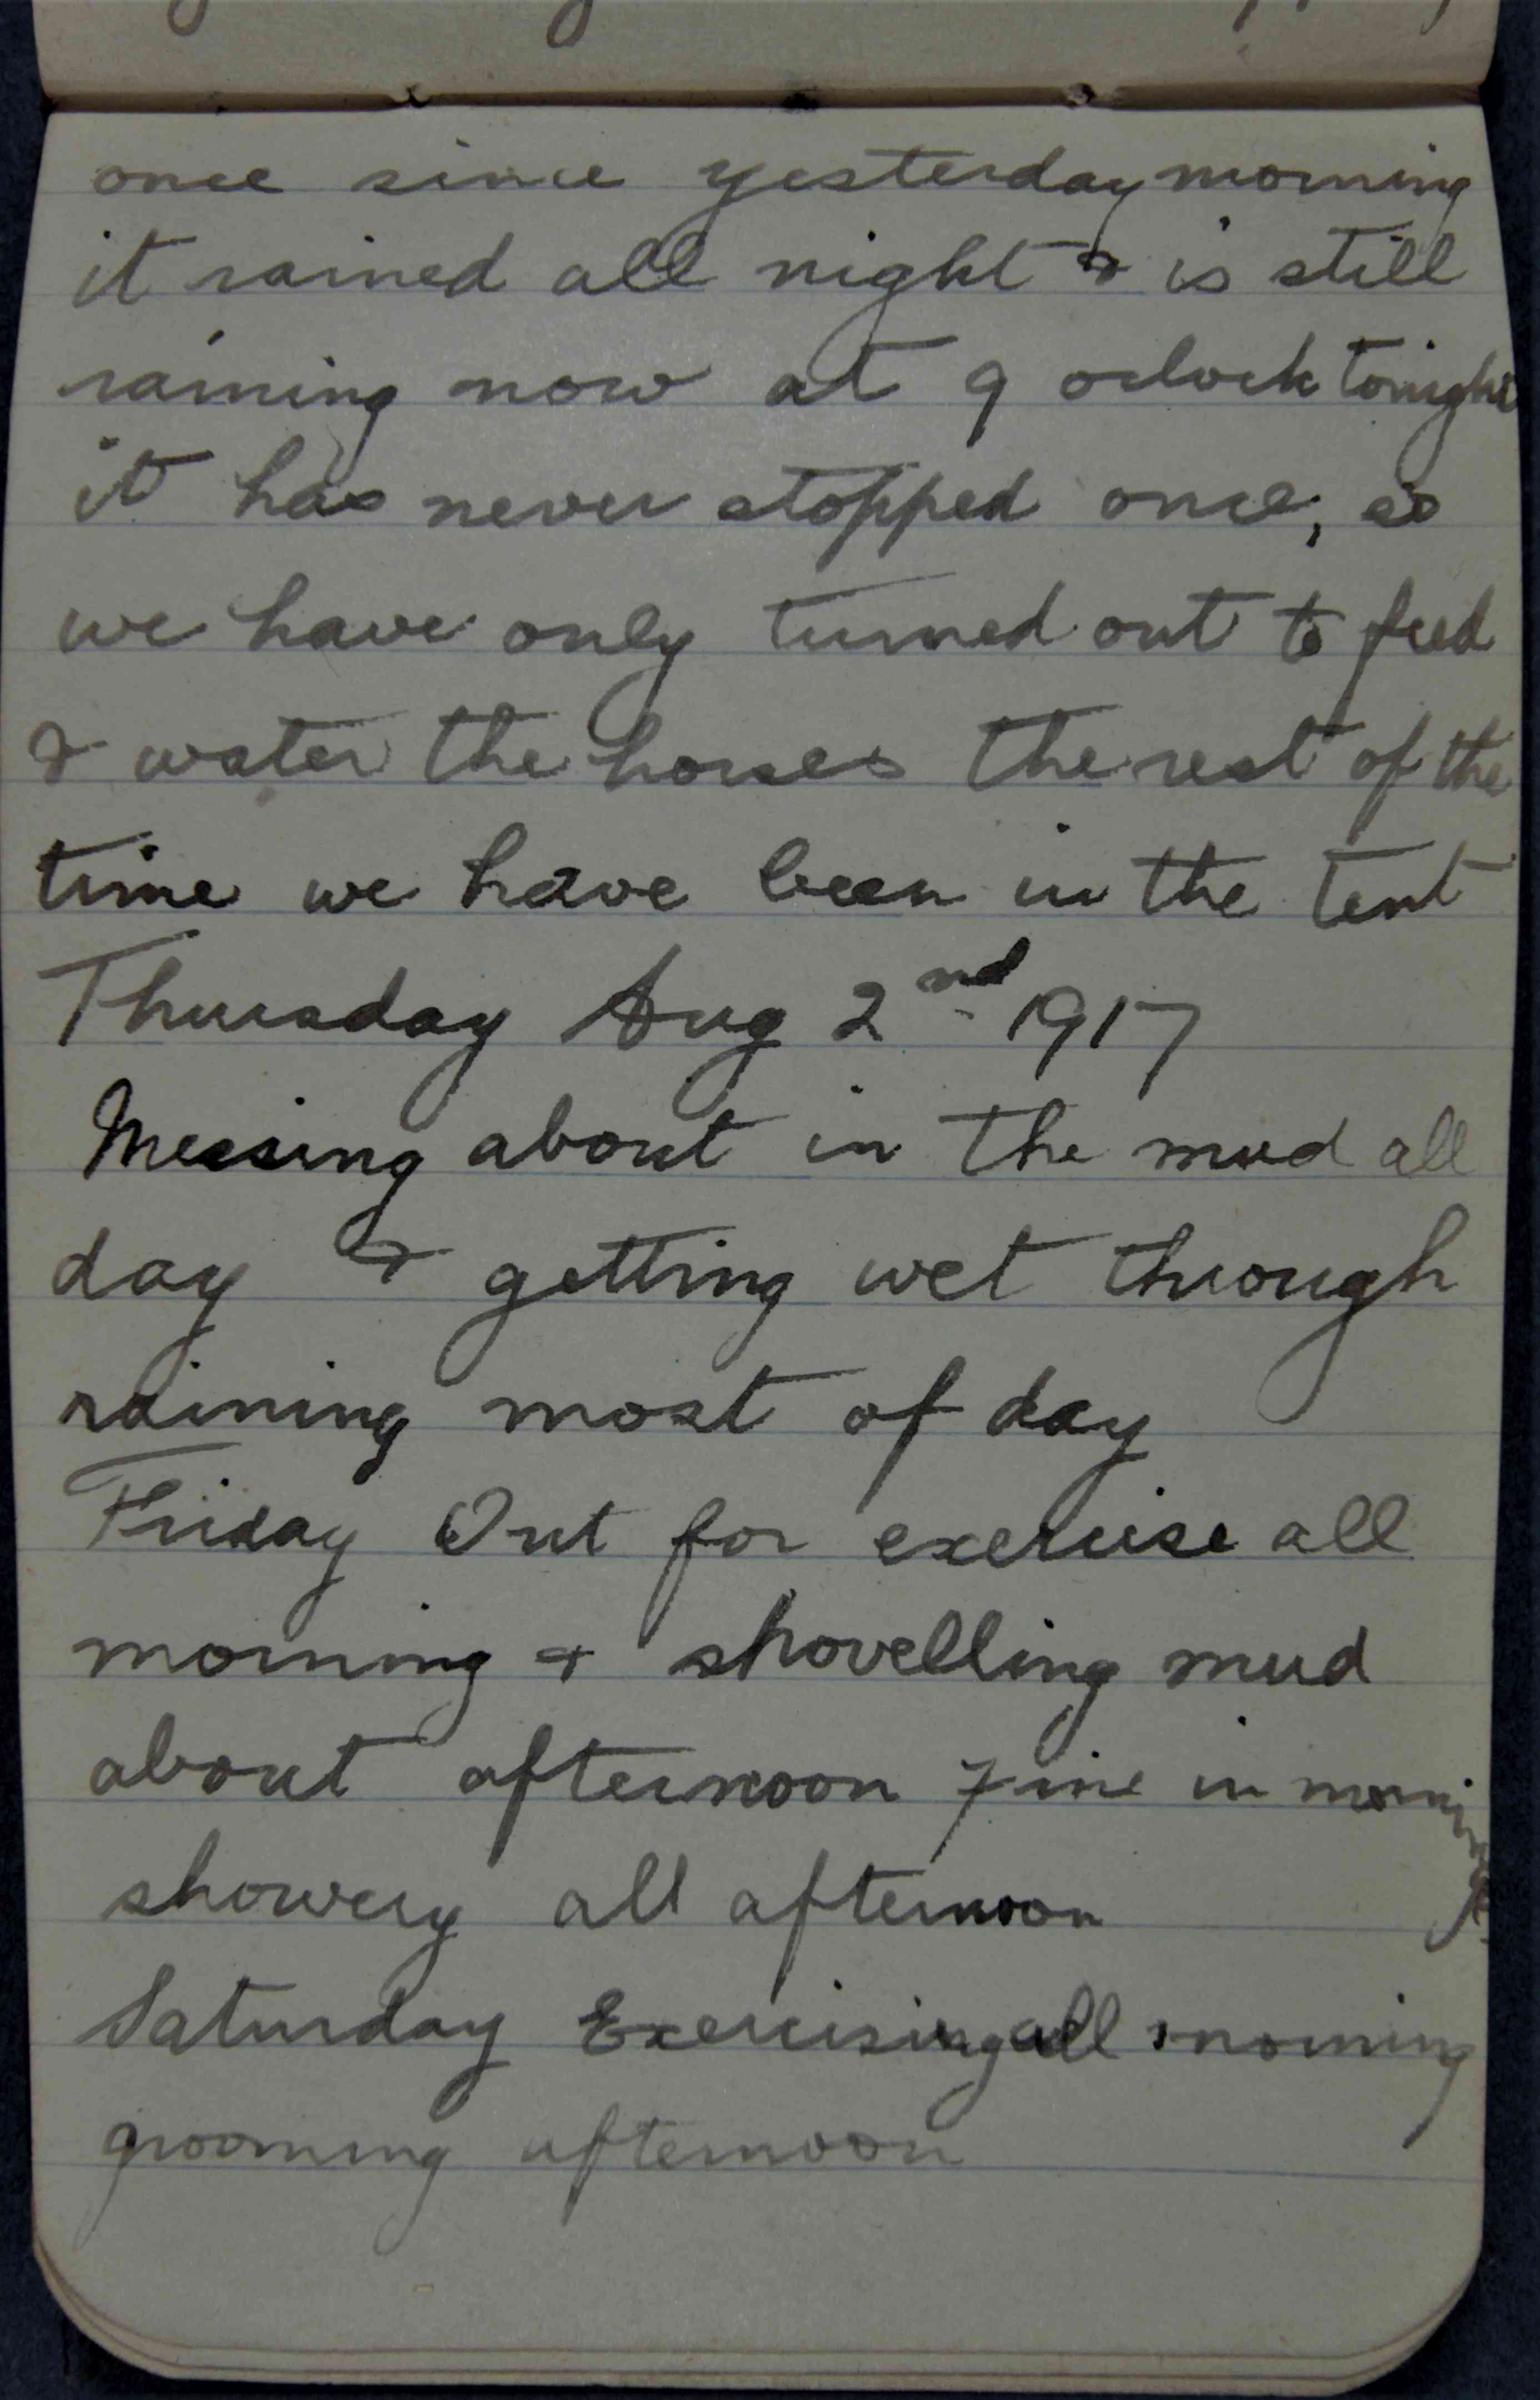 once since yesterday morning
it rained all night & is still
raining now at 9 oclock tonight
it has never stopped once, so
we have only turned out to feed
& water the horses the rest of the
time we have been in the tent
Thursday Aug 2nd 1917
Messing about in the mud all
day & getting wet through
raining most of day
Friday Out for exercise all
morning & shovelling mud
about afternoon Fine in morning
showery all afternoon
Saturday Exercising all morning
grooming afternoon